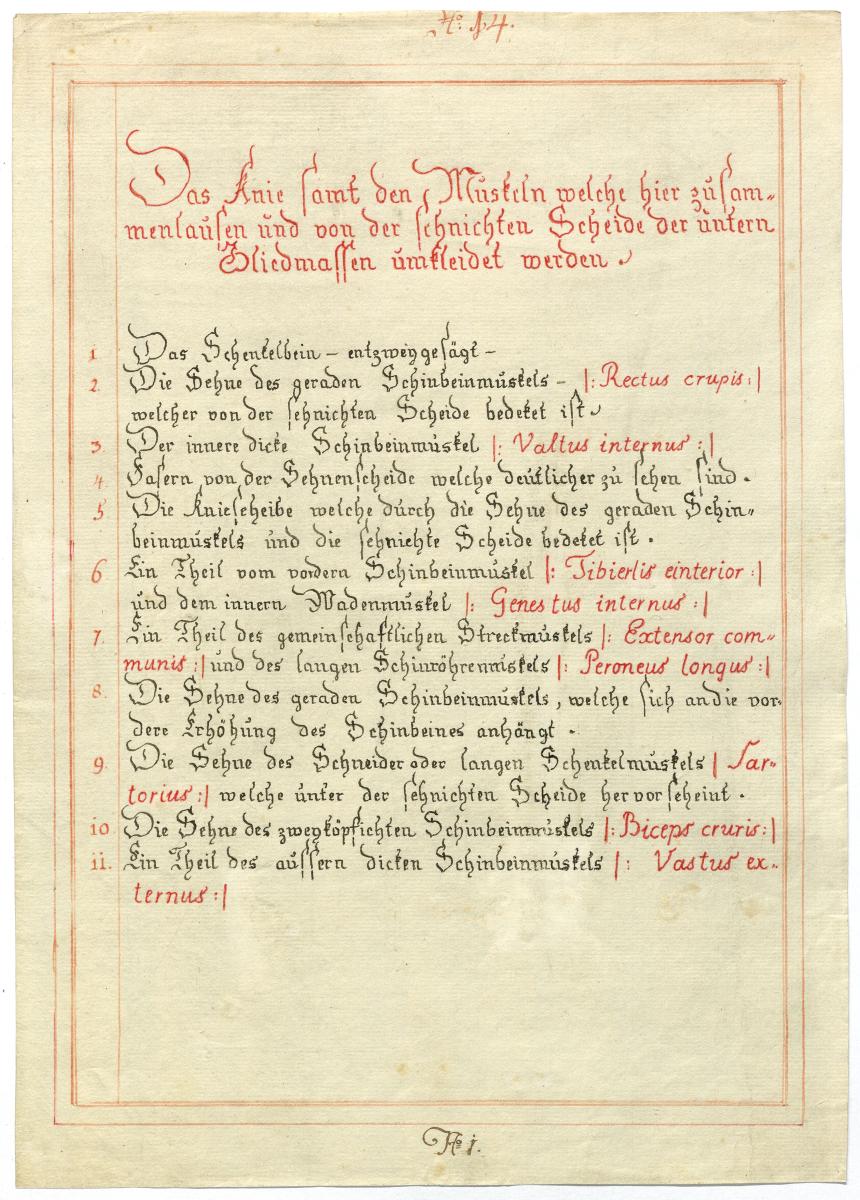 No: 14.
Das Knie samt den Muskeln welche hier zusam-
menlaufen und von der sehnichten Scheide der untern
Gliedmassen umkleidet werden.
1 Das Schenkelbein – entzweygesägt –
2. Die Sehne des geraden Schinbeinmuskels – |: Rectus crupis :|
welcher von der sehnichten Scheide bedeket ist.
3. Der innere dicke Schinbeinmuskel |: Valtus internus :|
4. Fasern von der Sehnenscheide welche deutlicher zu sehen sind.
5 Die Kniescheibe welche durch die Sehne des geraden Schin-
beinmuskels und die sehnichte Scheide bedeket ist.
6 Ein Theil vom vordern Schinbeinmuskel |: Tibierlis einterior :|
und dem innern Wadenmuskel |: Genestus internus :|
7. Ein Theil des gemeinschaftlichen Streckmuskels |: Extensor com-
munis :| und des langen Schinröhrenmuskels |: Peroneus longus :|
8. Die Sehne des geraden Schinbeinmuskels, welche sich an die vor-
dere Erhöhung des Schinbeines anhängt.
9. Die Sehne des Schneider oder langen Schenkelmuskels | Sar-
torius :| welche unter der sehnichten Scheide hervorscheint.
10 Die Sehne des zweyköpfichten Schinbeinmuskels |: Biceps cruris :|
11. Ein Theil des aussern dicken Schinbeinmuskels |: Vastus ex-
ternus :|
No 1.